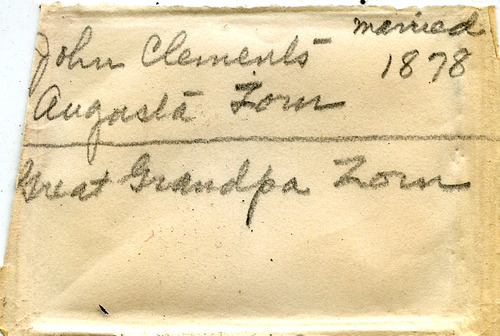 John Clements married
1878
Augasta Zorn
Great Grandpa Zorn